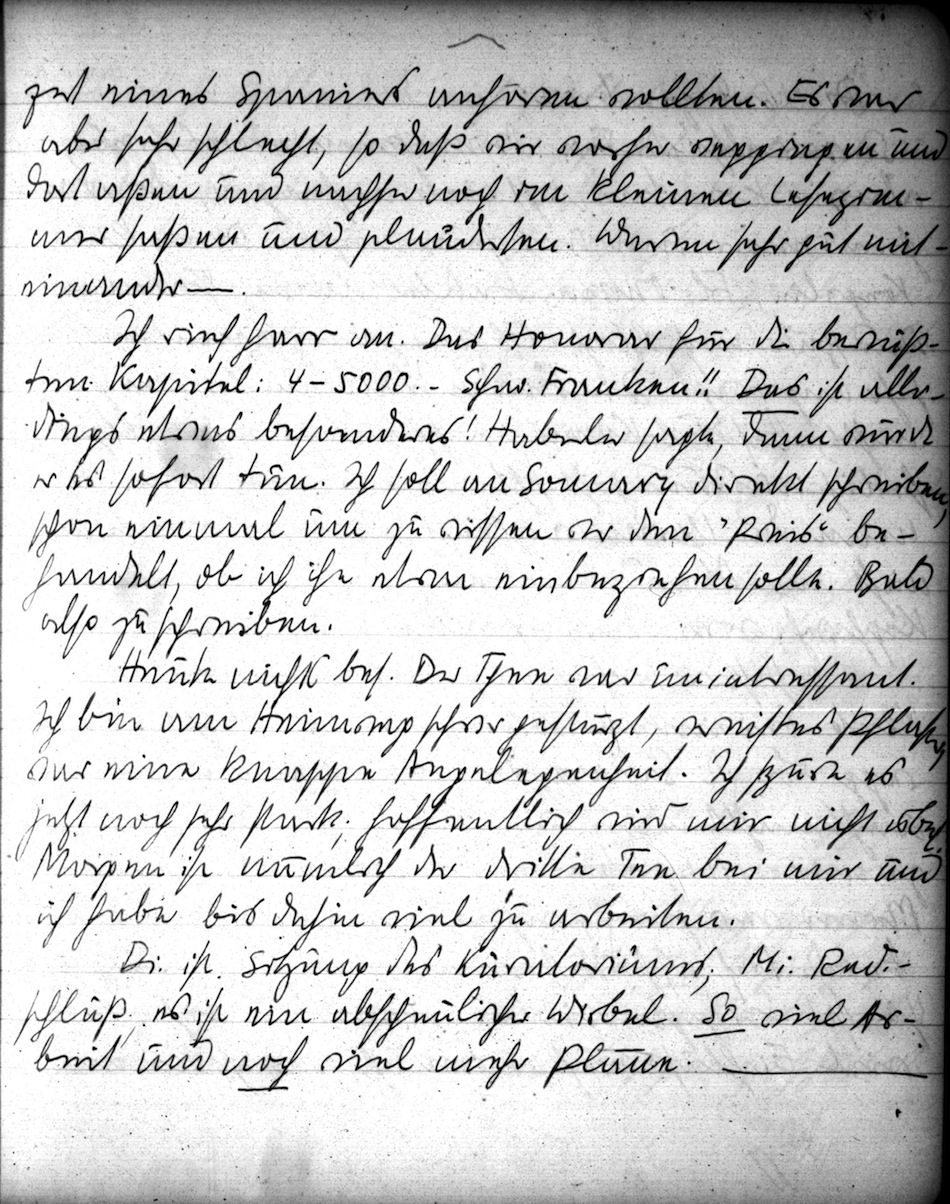 zert eines Spaniers anhören wollten. Es war
aber sehr schlecht, so daß wir vorher weggingen und
dort aßen und nachher noch im kleinen Lesezim-
mer saßen und plauderten. Waren sehr gut mit-
einander —.
Ich rief Harr an. Das Honorar für die bewuß-
ten Kapitel: 4 – 5000.– Schw. Franken!! Das ist aller-
dings etwas besonderes! Haberler sagte, dann würde
er es sofort tun. Ich soll an Somary direkt schreiben,
schon einmal um zu wissen wer den "Preis" be-
handelt, ob ich ihn etwa einbeziehen sollte. Bald
also zu schreiben.
Heute nichts bes. Der Thee war uninteressant.
Ich bin am Heimweg schwer gestürzt,
war eine knappe Angelegenheit. Ich spüre es
jetzt noch sehr stark, hoffentlich wird mir nicht übel.
Morgen ist nämlich der dritte Tee bei mir und
ich habe bis dahin viel zu arbeiten.
Di. ist Sitzung des Kuratoriums, Mi. Red.-
schluß, es ist ein abscheulicher Wirbel. So viel Ar-
beit und noch viel mehr Pläne. —